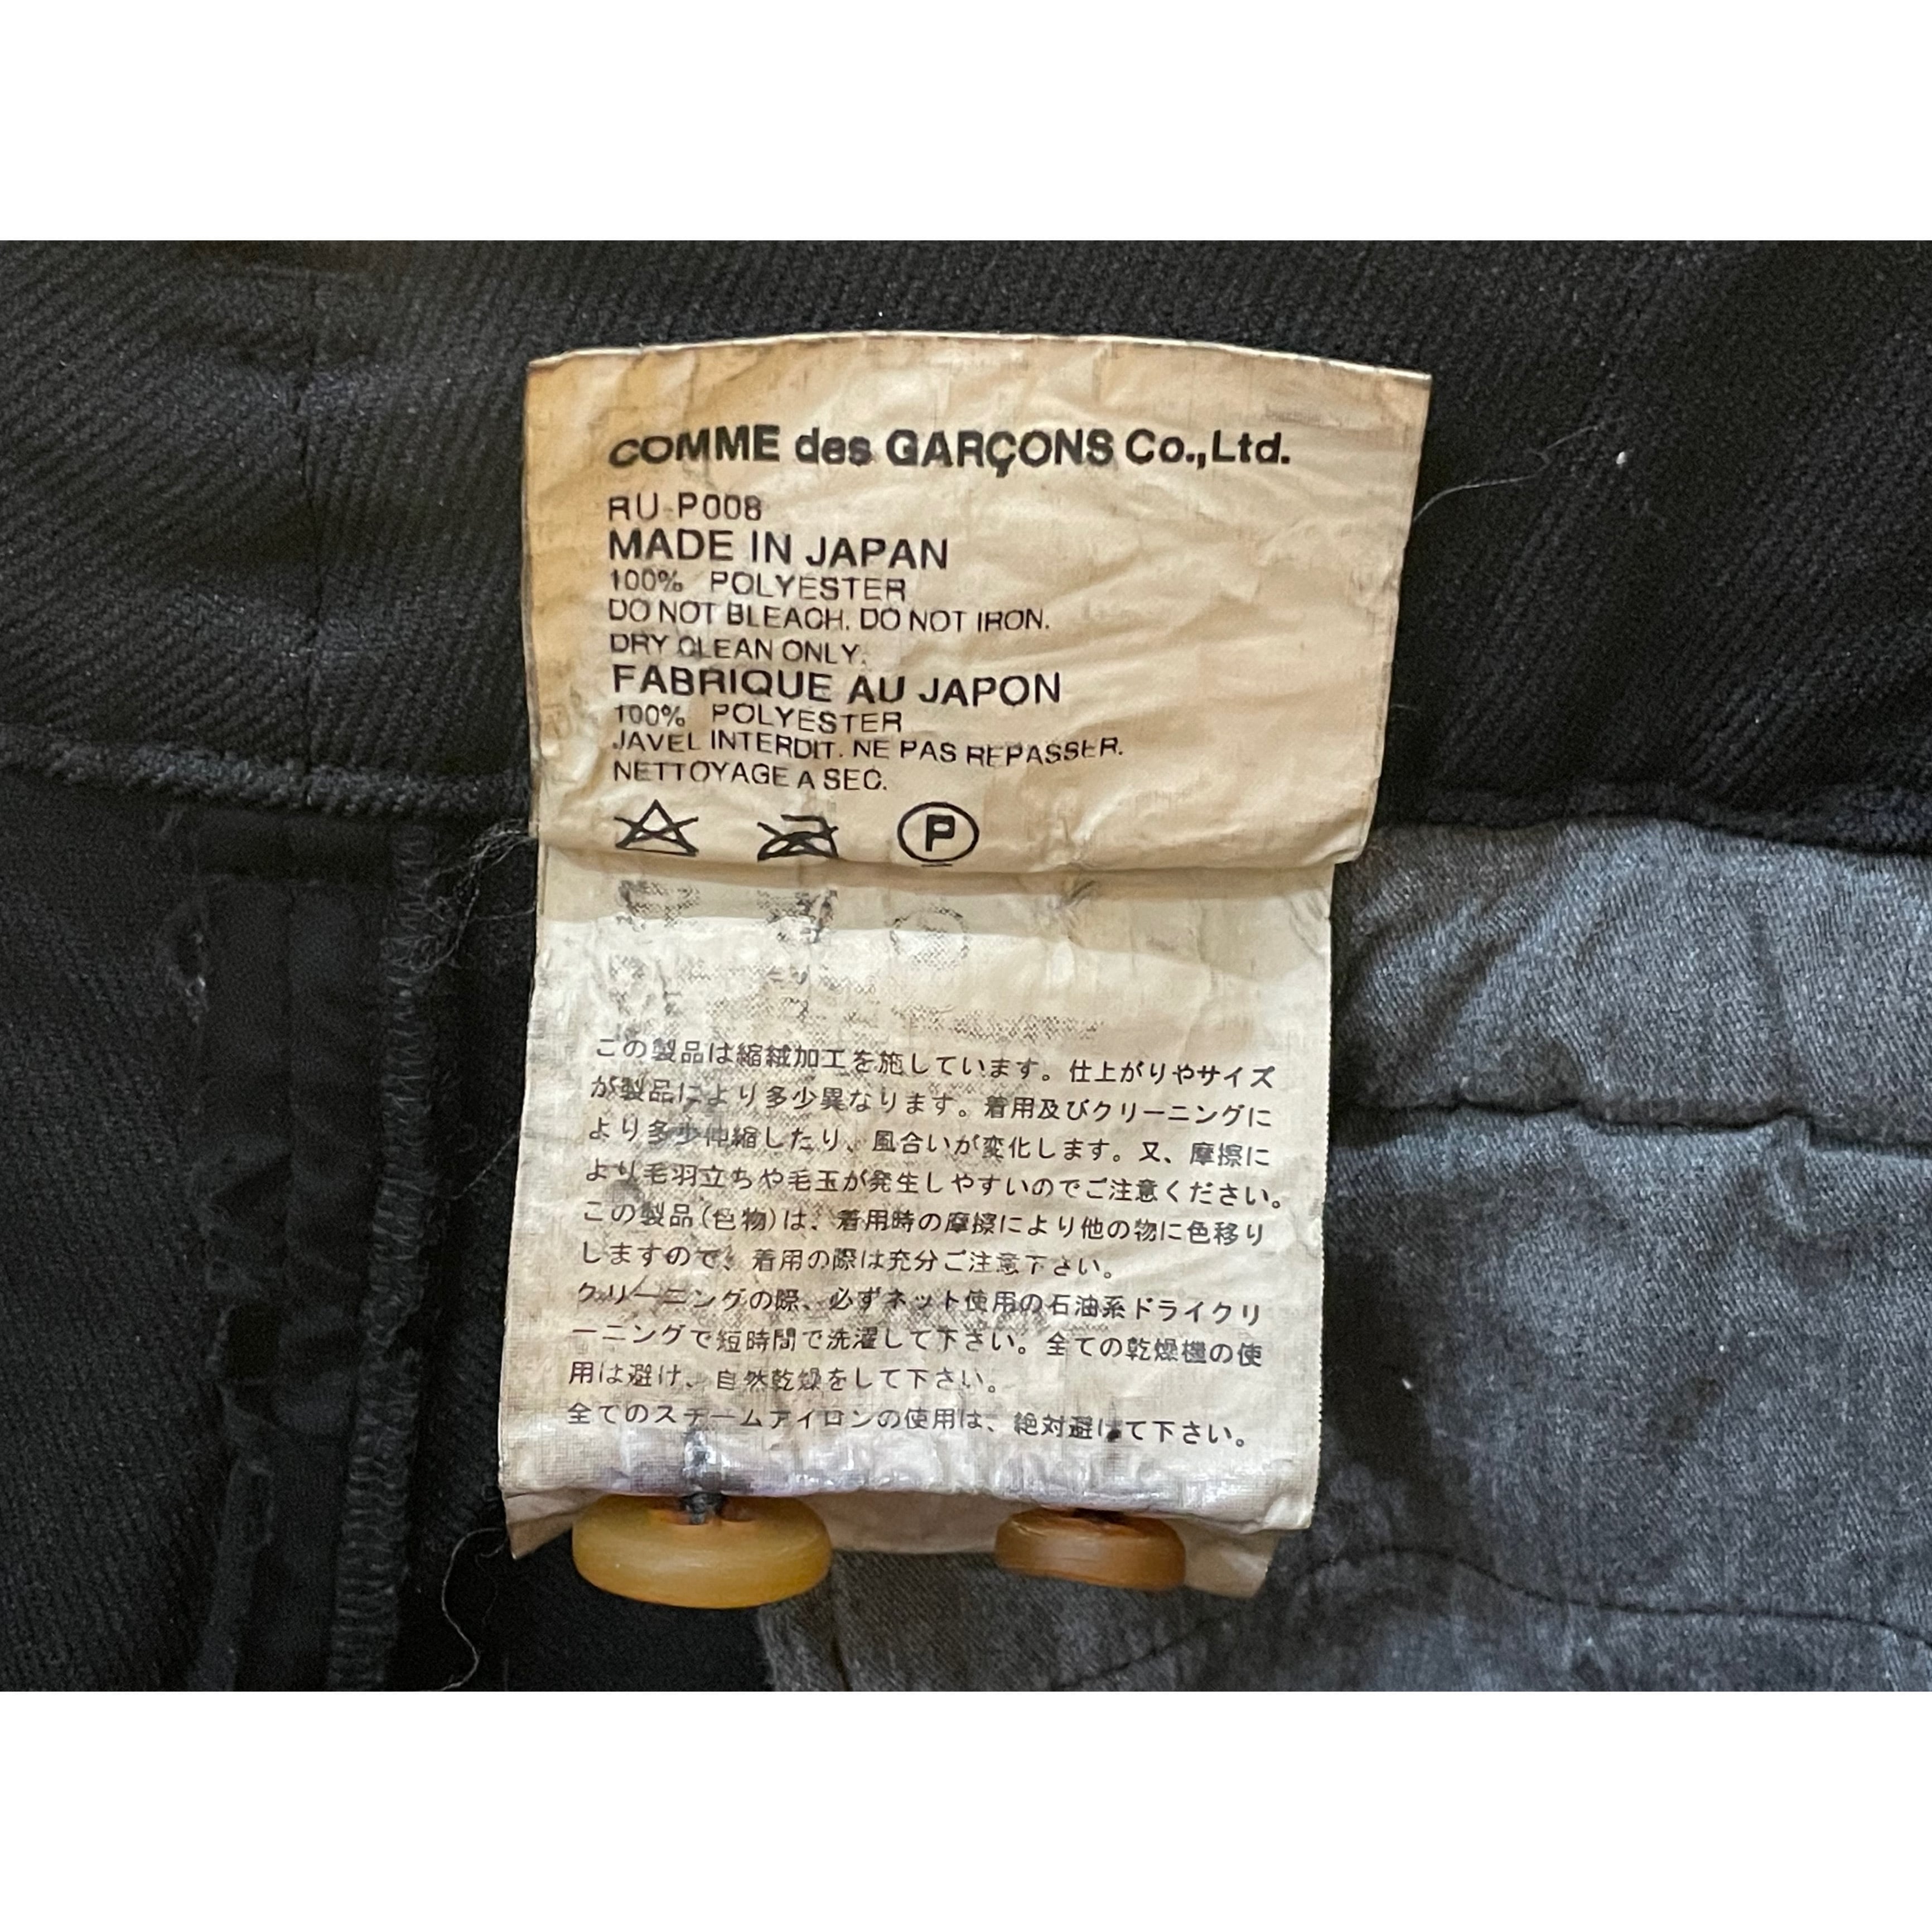 COMME des GARÇONS Co.,Ltd.
RU-P008
MADE IN JAPAN
100% POLYESTER
DO NOT BLEACH. DO NOT IRON.
DRY CLEAN ONLY.
FABRIQUE AU JAPON
100% POLYESTER
JAVEL INTERDIT. NE PAS REPASSER.
NETTOYAGE A SEC.
P
この製品は縮絨加工を施しています。仕上がりやサイズ
が製品により多少異なります。着用及びクリーニングに
より多少伸縮したり、風合いが変化します。又、摩擦に
より毛羽立ちや毛玉が発生しやすいのでご注意ください。
この製品(色物)は、着用時の摩擦により他の物に色移り
しますので、着用の際は充分ご注意下さい。
クリーニングの際、必ずネット使用の石油系ドライクリ
ーニングで短時間で洗濯して下さい。全ての乾燥機の使
用は避け、自然乾燥をして下さい。
全てのスチームアイロンの使用は、絶対避けて下さい。